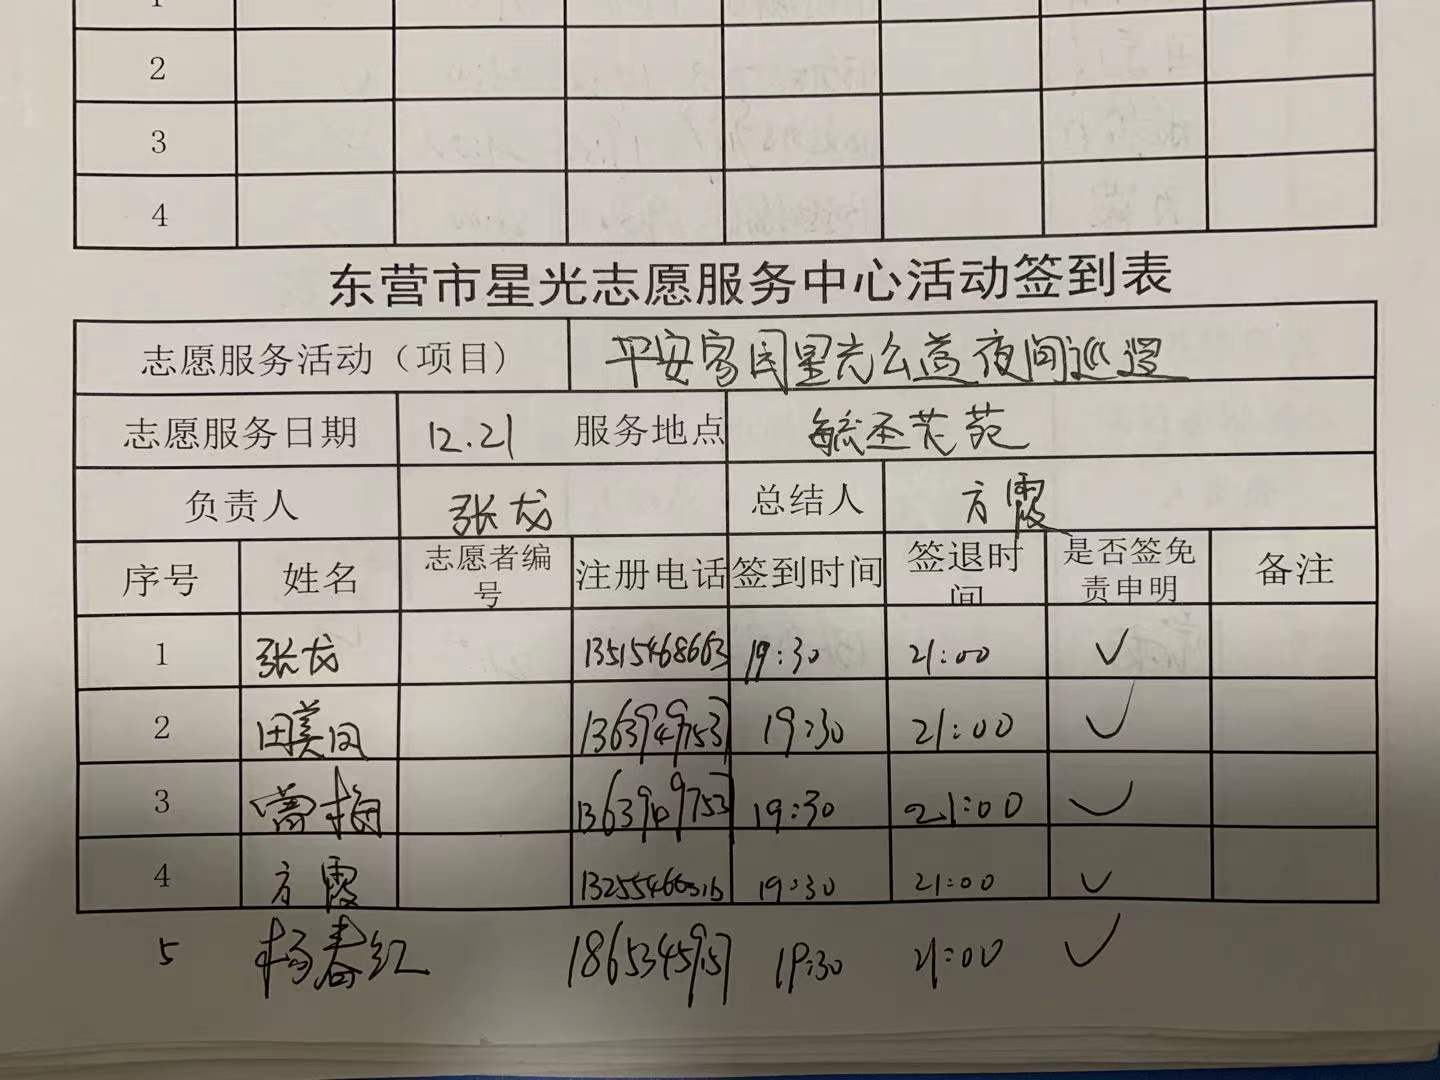 1
2
3
4
东营市星光志愿服务中心活动签到表
志愿服务活动（项目） 平安富民星光公益夜间巡逻
志愿服务日期 12.21 服务地点 苑
负责人 张龙 总结人 方霞
序号 姓名 志愿者编号 注册电话 签到时间 签退时间 是否签免责申明 备注
1 张龙 13515468663 19:30 21:00 ✓
2 田美凤 19:30 21:00 ✓
3 梅 19:30 21:00 ✓
4 方霞 19:30 21:00 ✓
5 杨春红 19:30 21:00 ✓